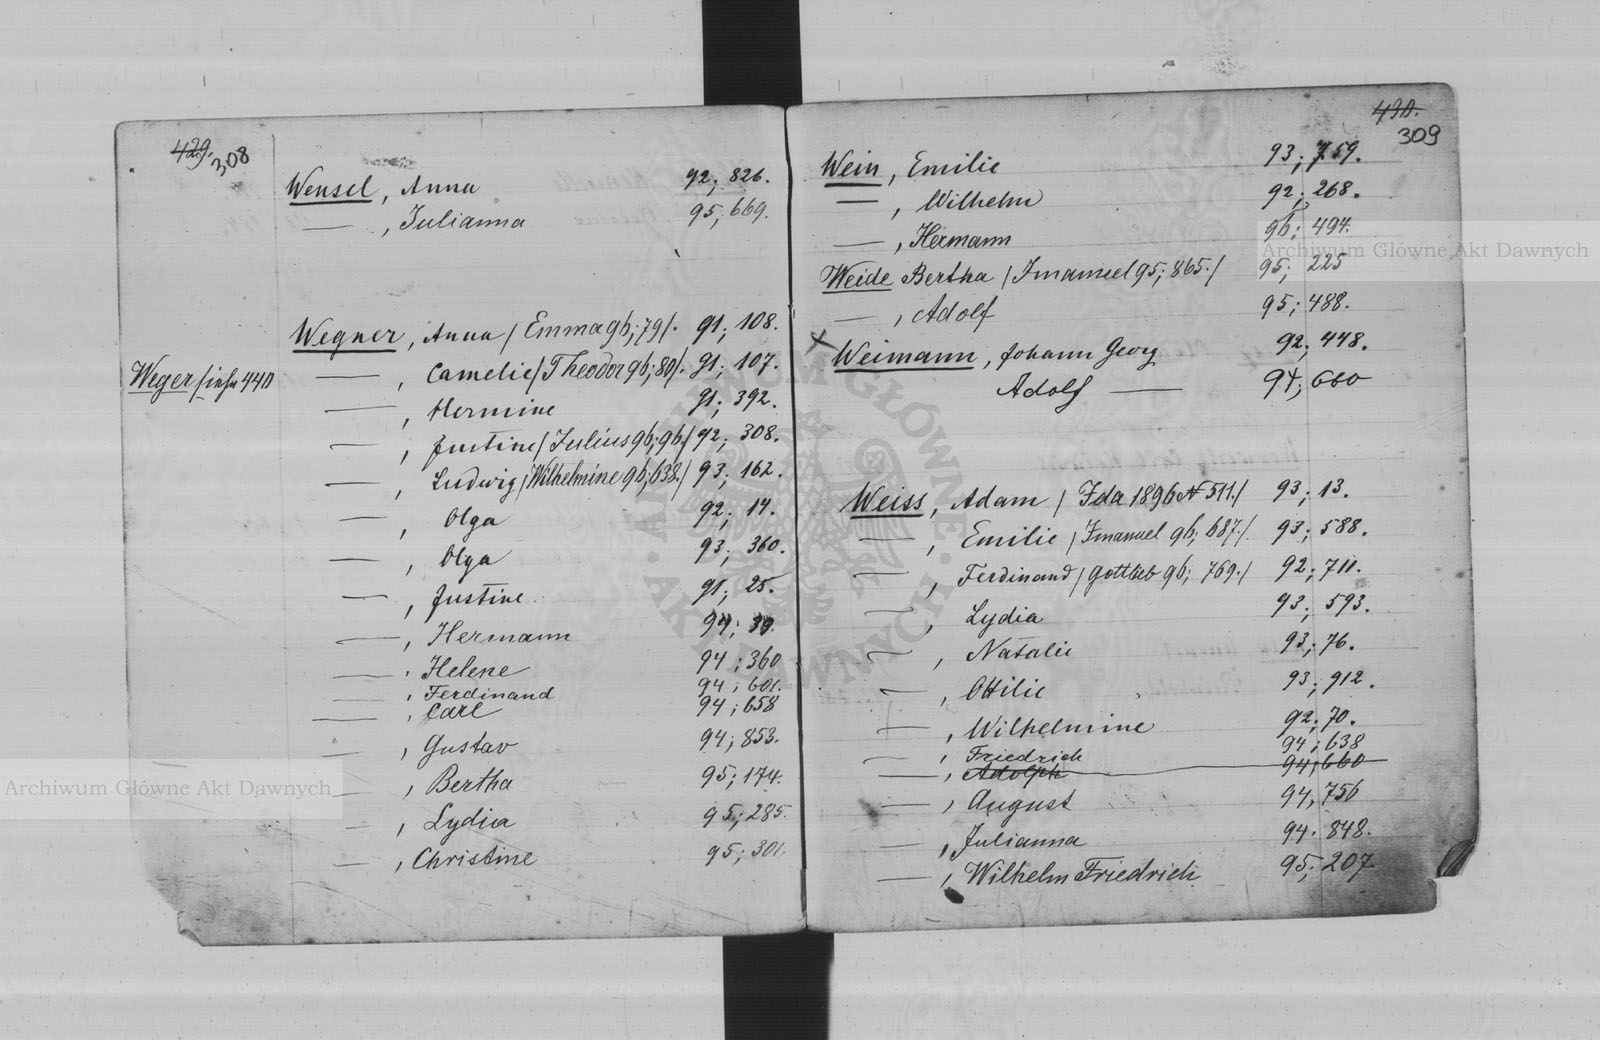 429. 308
Wensel, Anna 92; 826.
—, Julianna 95; 669.
Wegner, Anna / Emma 96; 79/. 91; 108.
Weger / siehe 440
—, Camelie / Theodor 96; 80/. 91; 107.
—, Hermine 91; 392.
—, Justine / Julius 96; 96./ 92; 308.
—, Ludwig / Wilhelmine 96; 638./ 93; 162.
—, Olga 92; 14.
—, Olga 93; 360.
—, Justine 91; 25.
—, Hermann 94; 39.
—, Helene 94; 360
—, Ferdinand 94; 601.
—, Carl 94; 658
—, Gustav 94; 853.
—, Bertha 95; 174.
—, Lydia 95; 285.
—, Christine 95; 301.
430. 309
Wein, Emilie 93; 759.
—, Wilhelm 92; 268.
—, Hermann 96; 494.
Weide Bertha / Imanuel 95; 865./ 95; 225
—, Adolf 95; 488.
x Weimann, Johann Georg 92; 448.
Adolf — 94; 660
Weiss, Adam / Ida 1896 № 511./ 93; 13.
—, Emilie / Imanuel 96; 687./. 93; 588.
—, Ferdinand / Gottlieb 96; 769./ 92; 711.
—, Lydia 93; 593.
—, Natalie 93; 76.
—, Ottilie 93; 912.
—, Wilhelmine 92; 70.
—, Friedrich 94; 638
—, Adolph 94; 660
—, August 94, 756
—, Julianna 94. 848.
—, Wilhelm Friedrich 95; 207
Archiwum Główne Akt Dawnych
Archiwum Główne Akt Dawnych